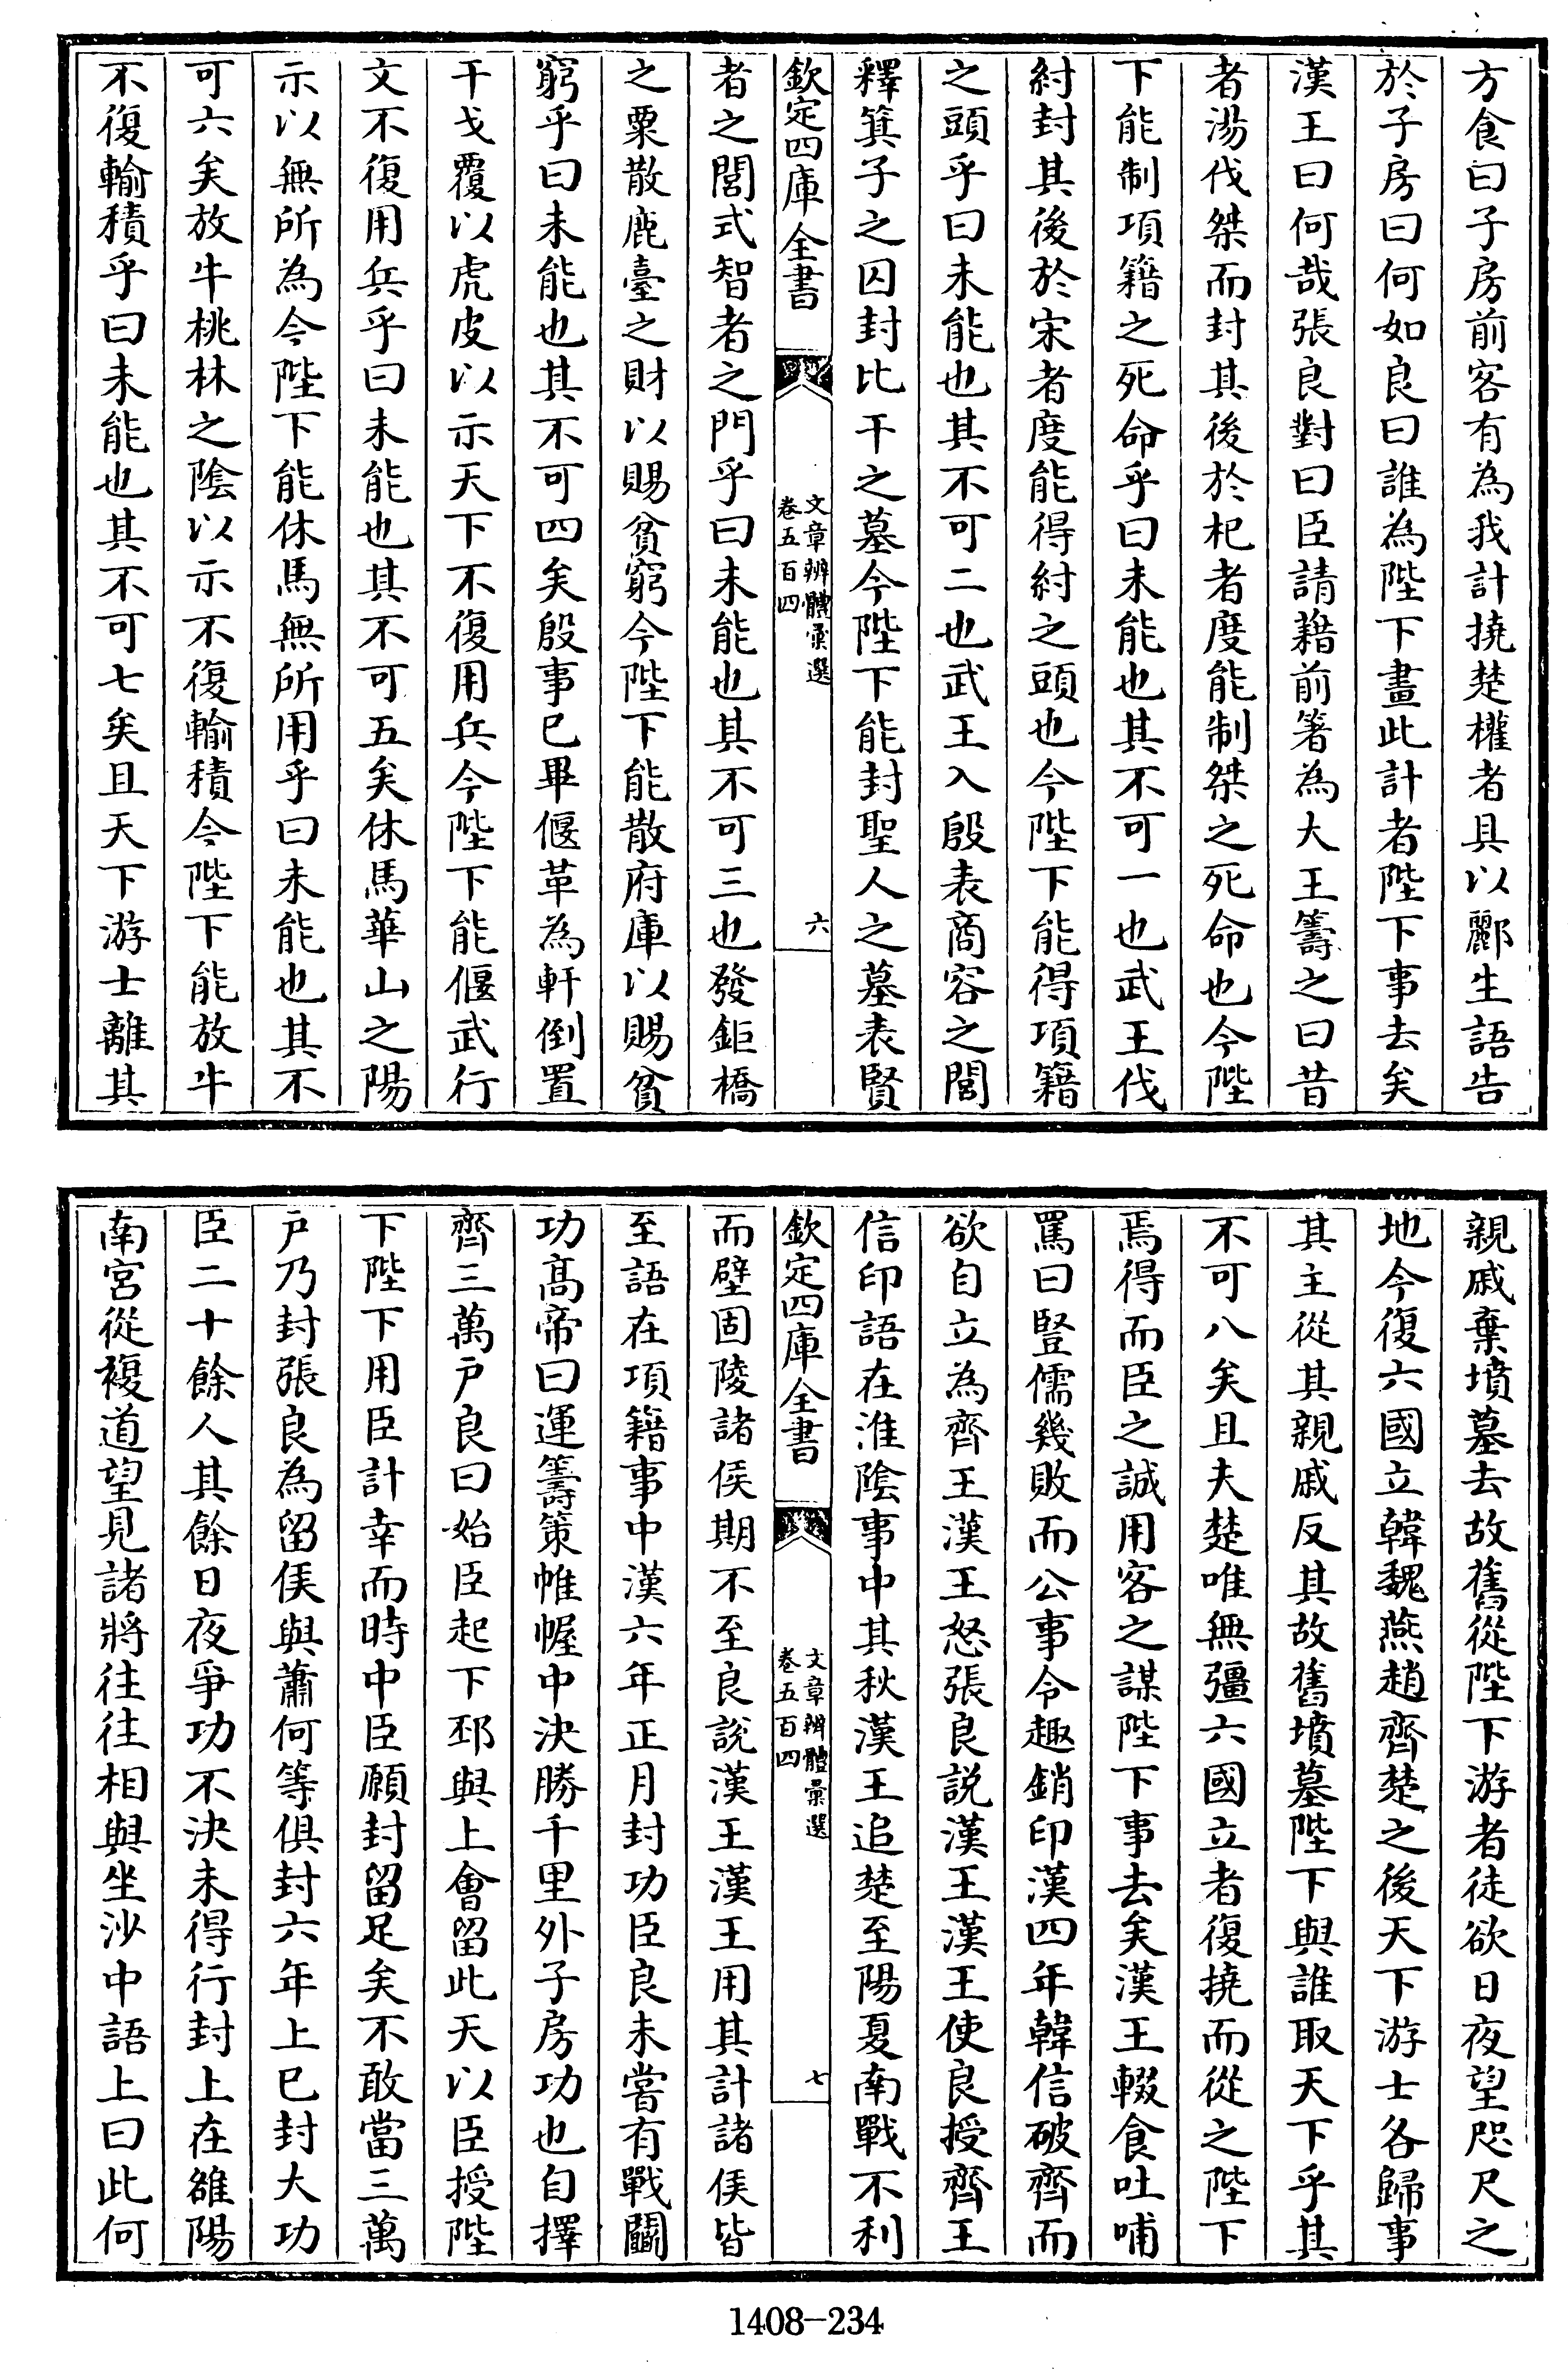 方食曰子房前客有為我計撓楚權者具以酈生語告
於子房曰何如良曰誰為陛下畫此計者陛下事去矣
漢王曰何哉張良對曰臣請藉前箸為大王籌之曰昔
者湯伐桀而封其後於杞者度能制桀之死命也今陛
下能制項籍之死命乎曰未能也其不可一也武王伐
紂封其後於宋者度能得紂之頭也今陛下能得項籍
之頭乎曰未能也其不可二也武王入殷表商容之閭
釋箕子之囚封比干之墓今陛下能封聖人之墓表賢
欽定四庫全書
文章辨體彙選
卷五百四
六
者之閭式智者之門乎曰未能也其不可三也發鉅橋
之粟散鹿臺之財以賜貧窮今陛下能散府庫以賜貧
窮乎曰未能也其不可四矣殷事已畢偃革為軒倒置
干戈覆以虎皮以示天下不復用兵今陛下能偃武行
文不復用兵乎曰未能也其不可五矣休馬華山之陽
示以無所為今陛下能休馬無所用乎曰未能也其不
可六矣放牛桃林之陰以示不復輸積今陛下能放牛
不復輸積乎曰未能也其不可七矣且天下游士離其
親戚棄墳墓去故舊從陛下游者徒欲日夜望咫尺之
地今復六國立韓魏燕趙齊楚之後天下游士各歸事
其主從其親戚反其故舊墳墓陛下與誰取天下乎其
不可八矣且夫楚唯無彊六國立者復撓而從之陛下
焉得而臣之誠用客之謀陛下事去矣漢王輟食吐哺
罵曰豎儒幾敗而公事令趣銷印漢四年韓信破齊而
欲自立為齊王漢王怒張良說漢王漢王使良授齊王
信印語在淮陰事中其秋漢王追楚至陽夏南戰不利
欽定四庫全書
文章辨體彙選
卷五百四
七
而壁固陵諸侯期不至良說漢王漢王用其計諸侯皆
至語在項籍事中漢六年正月封功臣良未嘗有戰鬭
功高帝曰運籌策帷幄中決勝千里外子房功也自擇
齊三萬戶良曰始臣起下邳與上會留此天以臣授陛
下陛下用臣計幸而時中臣願封留足矣不敢當三萬
戶乃封張良為留侯與蕭何等俱封六年上已封大功
臣二十餘人其餘日夜爭功不決未得行封上在雒陽
南宮從複道望見諸將往往相與坐沙中語上曰此何
1408-234